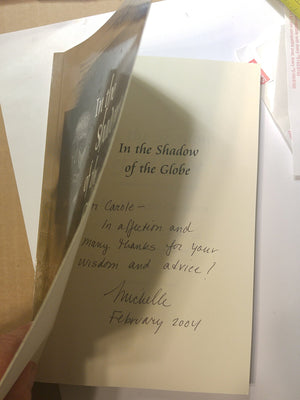 In the
Sh
of th
In the Shadow
of the Globe
Carole –
In affection and
many thanks for your
wisdom and advice!
Michelle
February 2004